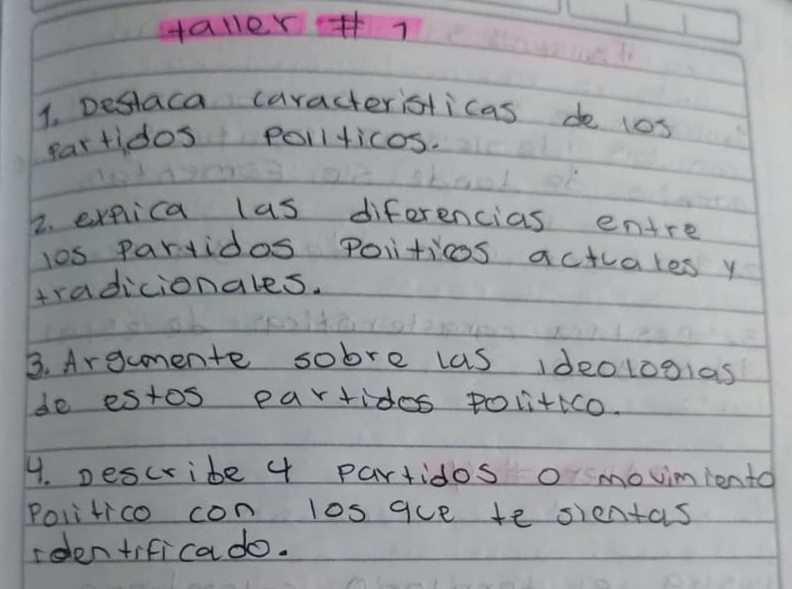 taller # 1
1. Destaca caracteristicas de los
partidos políticos.
2. explica las diferencias entre
los partidos políticos actuales y
tradicionales.
3. Argumente sobre las ideologias
de estos partidos político.
4. Describe 4 partidos o movimiento
político con los que te sientas
identificado.